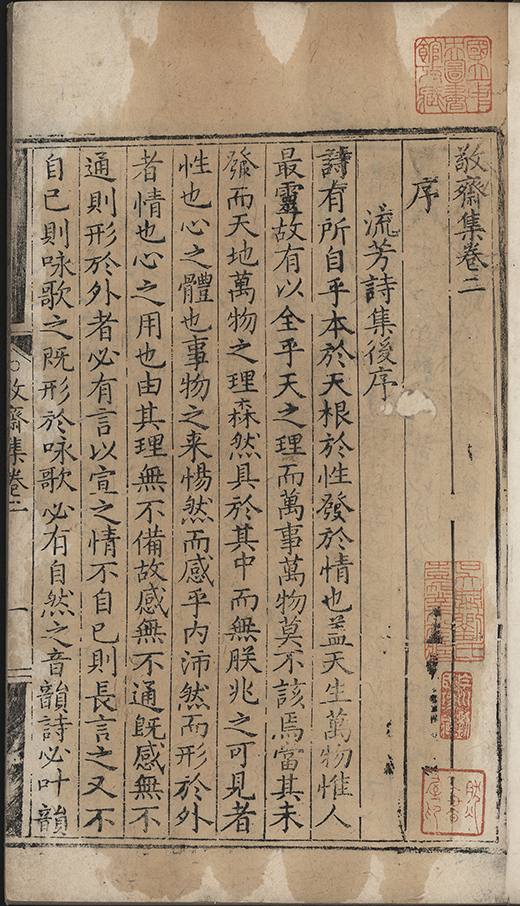 敬齋集卷二
序
流芳詩集後序
詩有所自乎本於天根於性發於情也盖天生萬物惟人
最靈故有以全乎天之理而萬事萬物莫不該焉當其未
發而天地萬物之理森然具於其中而無朕兆之可見者
性也心之體也事物之来惕然而感乎内沛然而形於外
者情也心之用也由其理無不備故感無不通既感無不
通則形於外者必有言以宣之情不自已則長言之又不
自已則咏歌之既形於咏歌必有自然之音韻詩必叶韻
敬齋集卷二
一
國立中
央圖書
館收藏